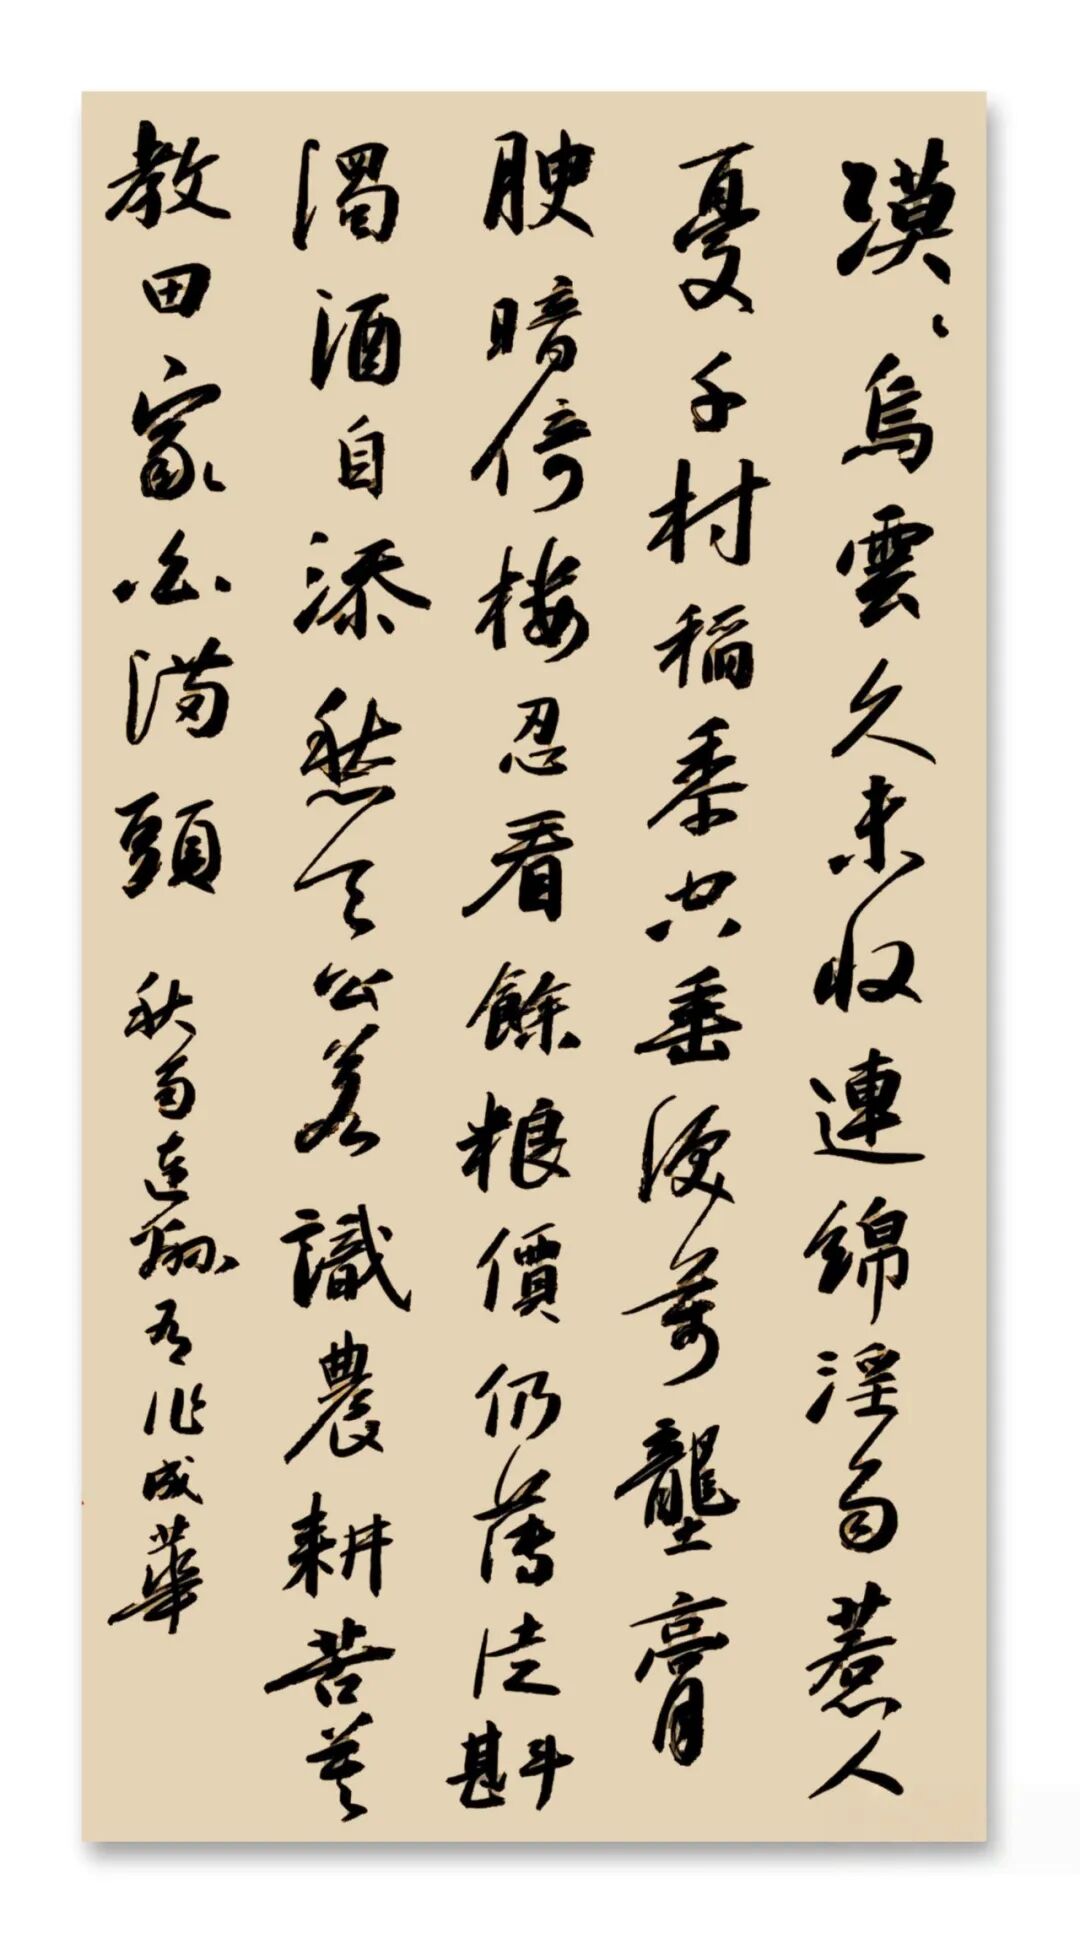 漠〻烏雲久未收連綿淫雨惹人
憂千村稻黍空垂淚萬壟膏
腴暗倚樓忍看餘粮價仍薄徒斟
濁酒自添愁天公若識農耕苦莫
教田家白滿頭 秋雨連綿有作成華